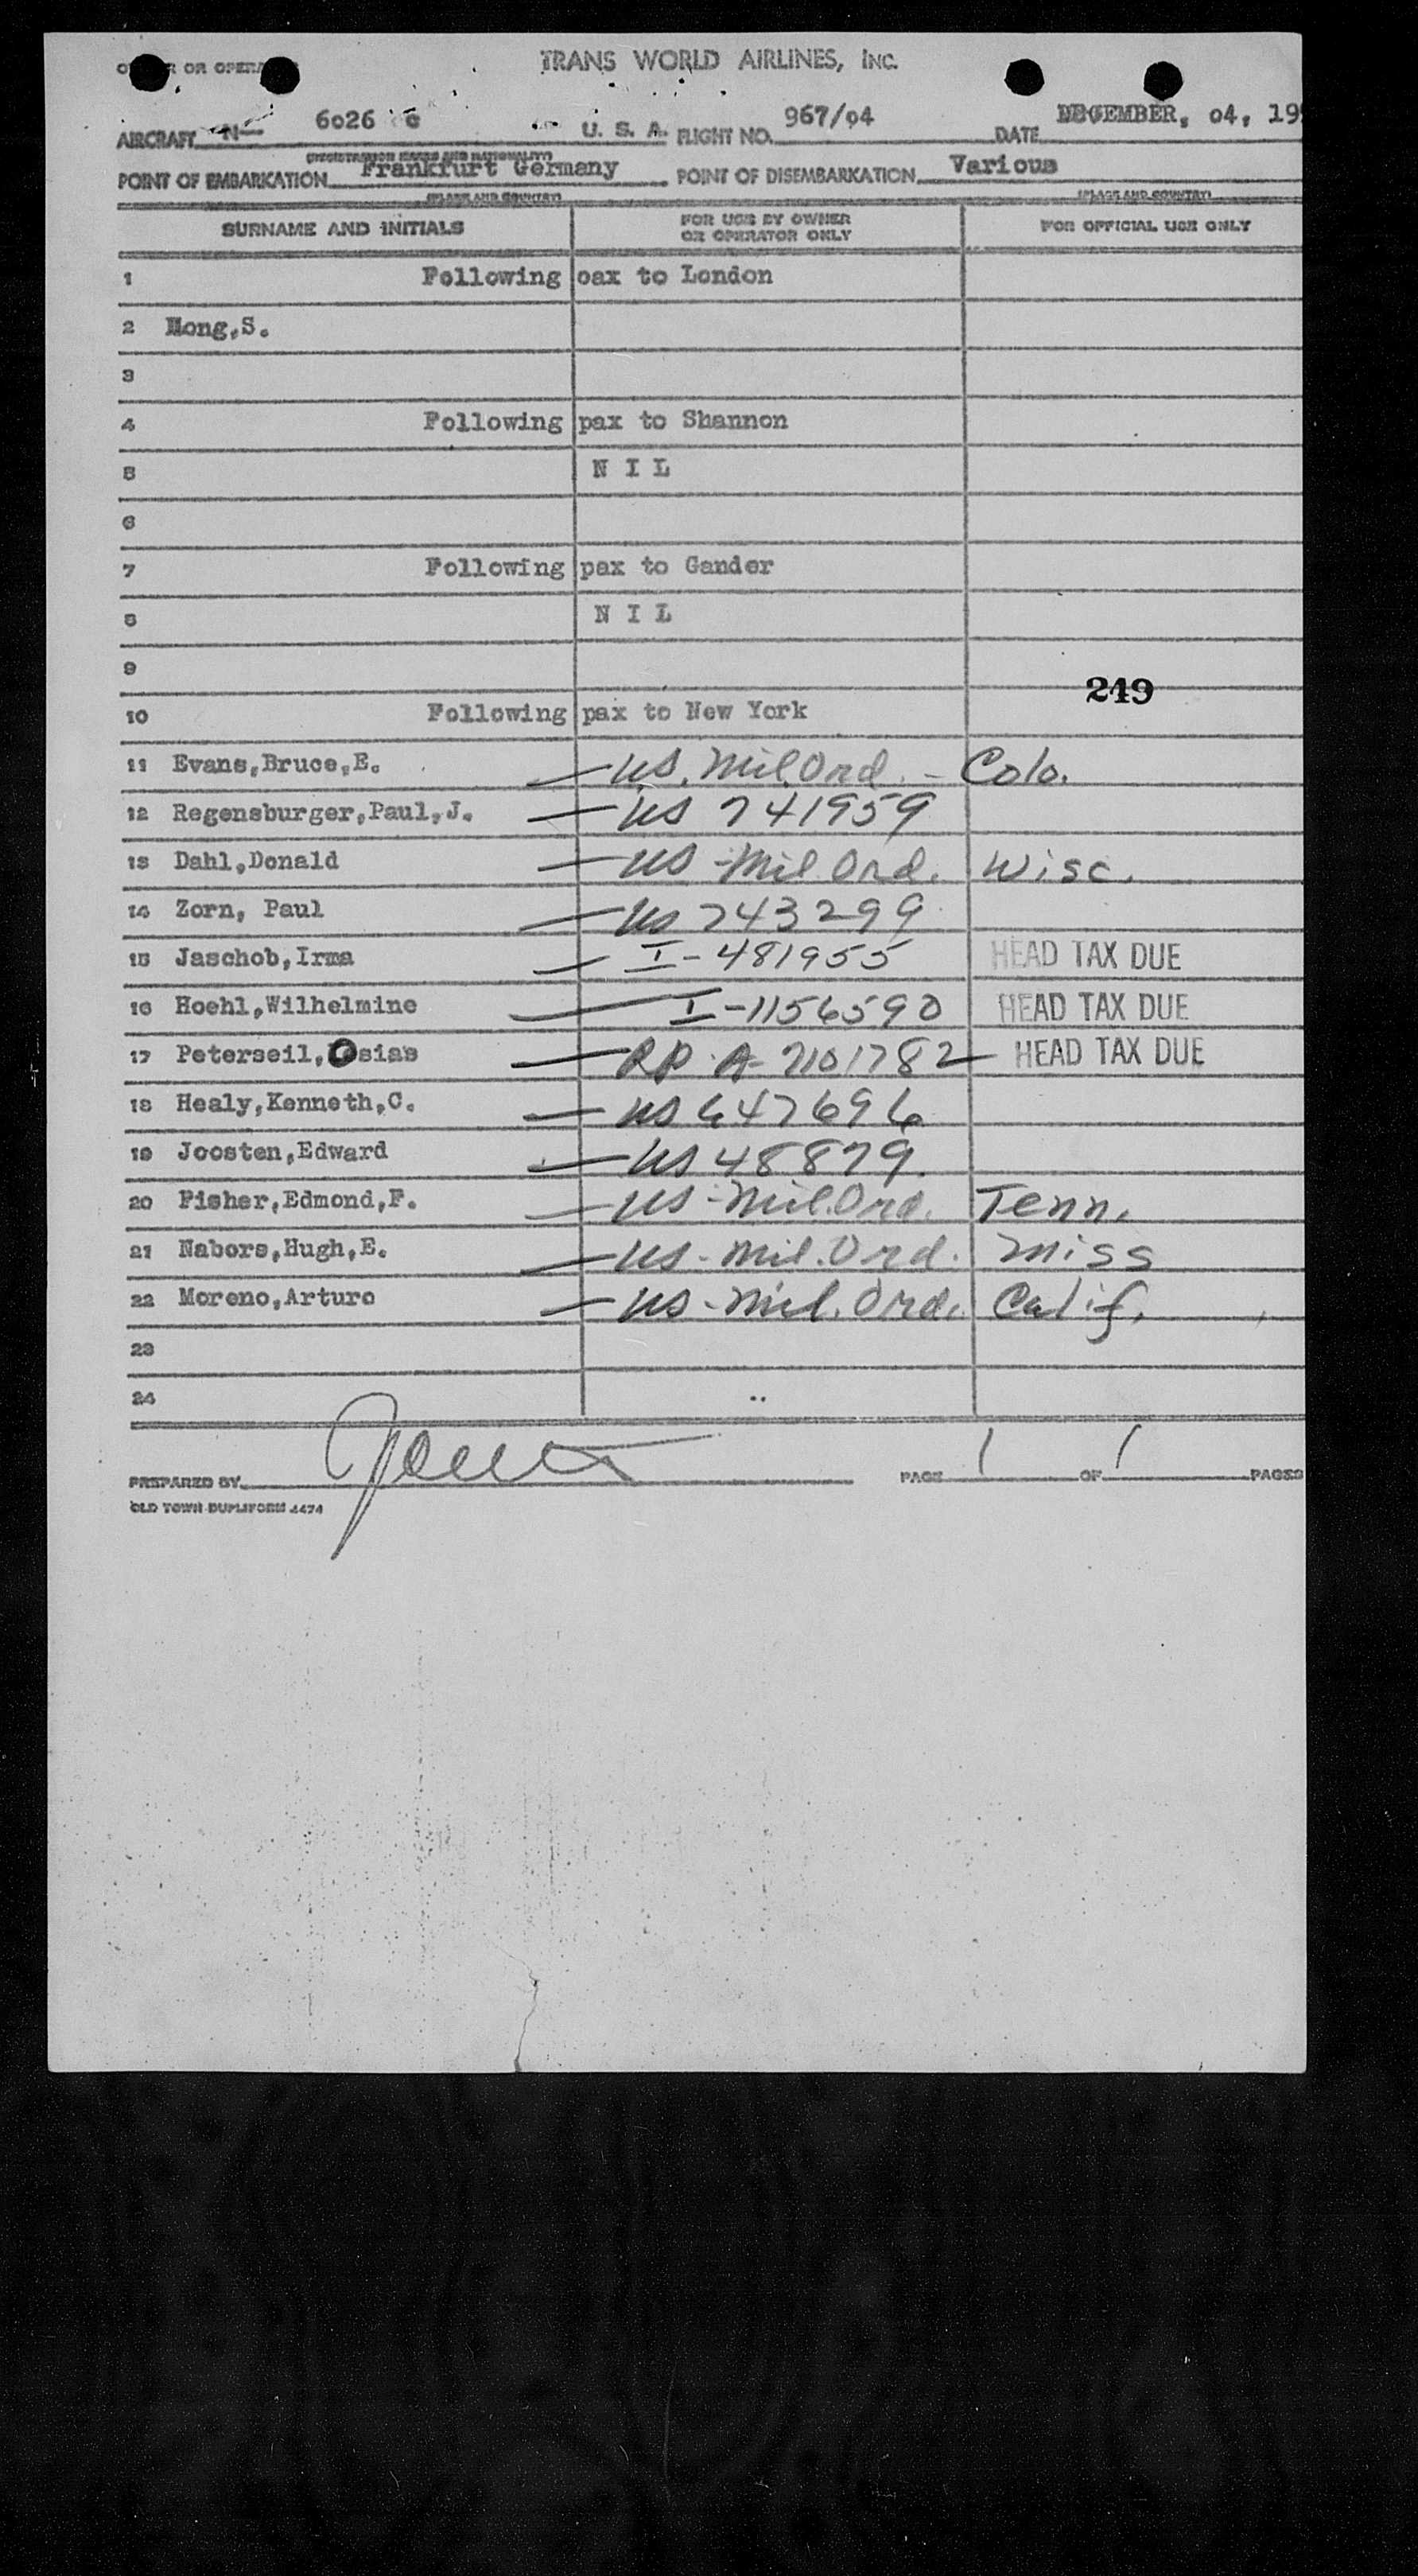 TRANS WORLD AIRLINES, INC.
OR OPERA
AIRCRAFT N— 6026 c U. S. A. FLIGHT NO. 967/04 DATE DECEMBER, 04, 19
(REGISTRATION MARKS AND NATIONALITY)
POINT OF EMBARKATION Frankfurt Germany POINT OF DISEMBARKATION Various
(PLACE AND COUNTRY) (PLACE AND COUNTRY)
SURNAME AND INITIALS FOR USE BY OWNER OR OPERATOR ONLY FOR OFFICIAL USE ONLY
1 Following pax to London
2 Mong,S.
3
4 Following pax to Shannon
5 N I L
6
7 Following pax to Gander
8 N I L
9
249
10 Following pax to New York
11 Evans,Bruce,E. — US. Mil Ord. - Colo.
12 Regensburger,Paul,J. — US 741959
13 Dahl,Donald — US - Mil Ord. Wisc.
14 Zorn, Paul — US 743299
15 Jaschob,Irma — I-481955 HEAD TAX DUE
16 Hoehl,Wilhelmine — I-1156590 HEAD TAX DUE
17 Peterseil,Osias — RP. A- 7101782 — HEAD TAX DUE
18 Healy,Kenneth,C. — US 647696
19 Joosten,Edward — US 48879.
20 Fisher,Edmond,F. — US - Mil.Ord. Tenn.
21 Nabors,Hugh,E. — US - Mil.Ord. Miss
22 Moreno,Arturo — US - Mil. Ord. Calif.
23
24
PREPARED BY PAGE 1 OF 1 PAGES
OLD TOWN DUPLIFORM 4474